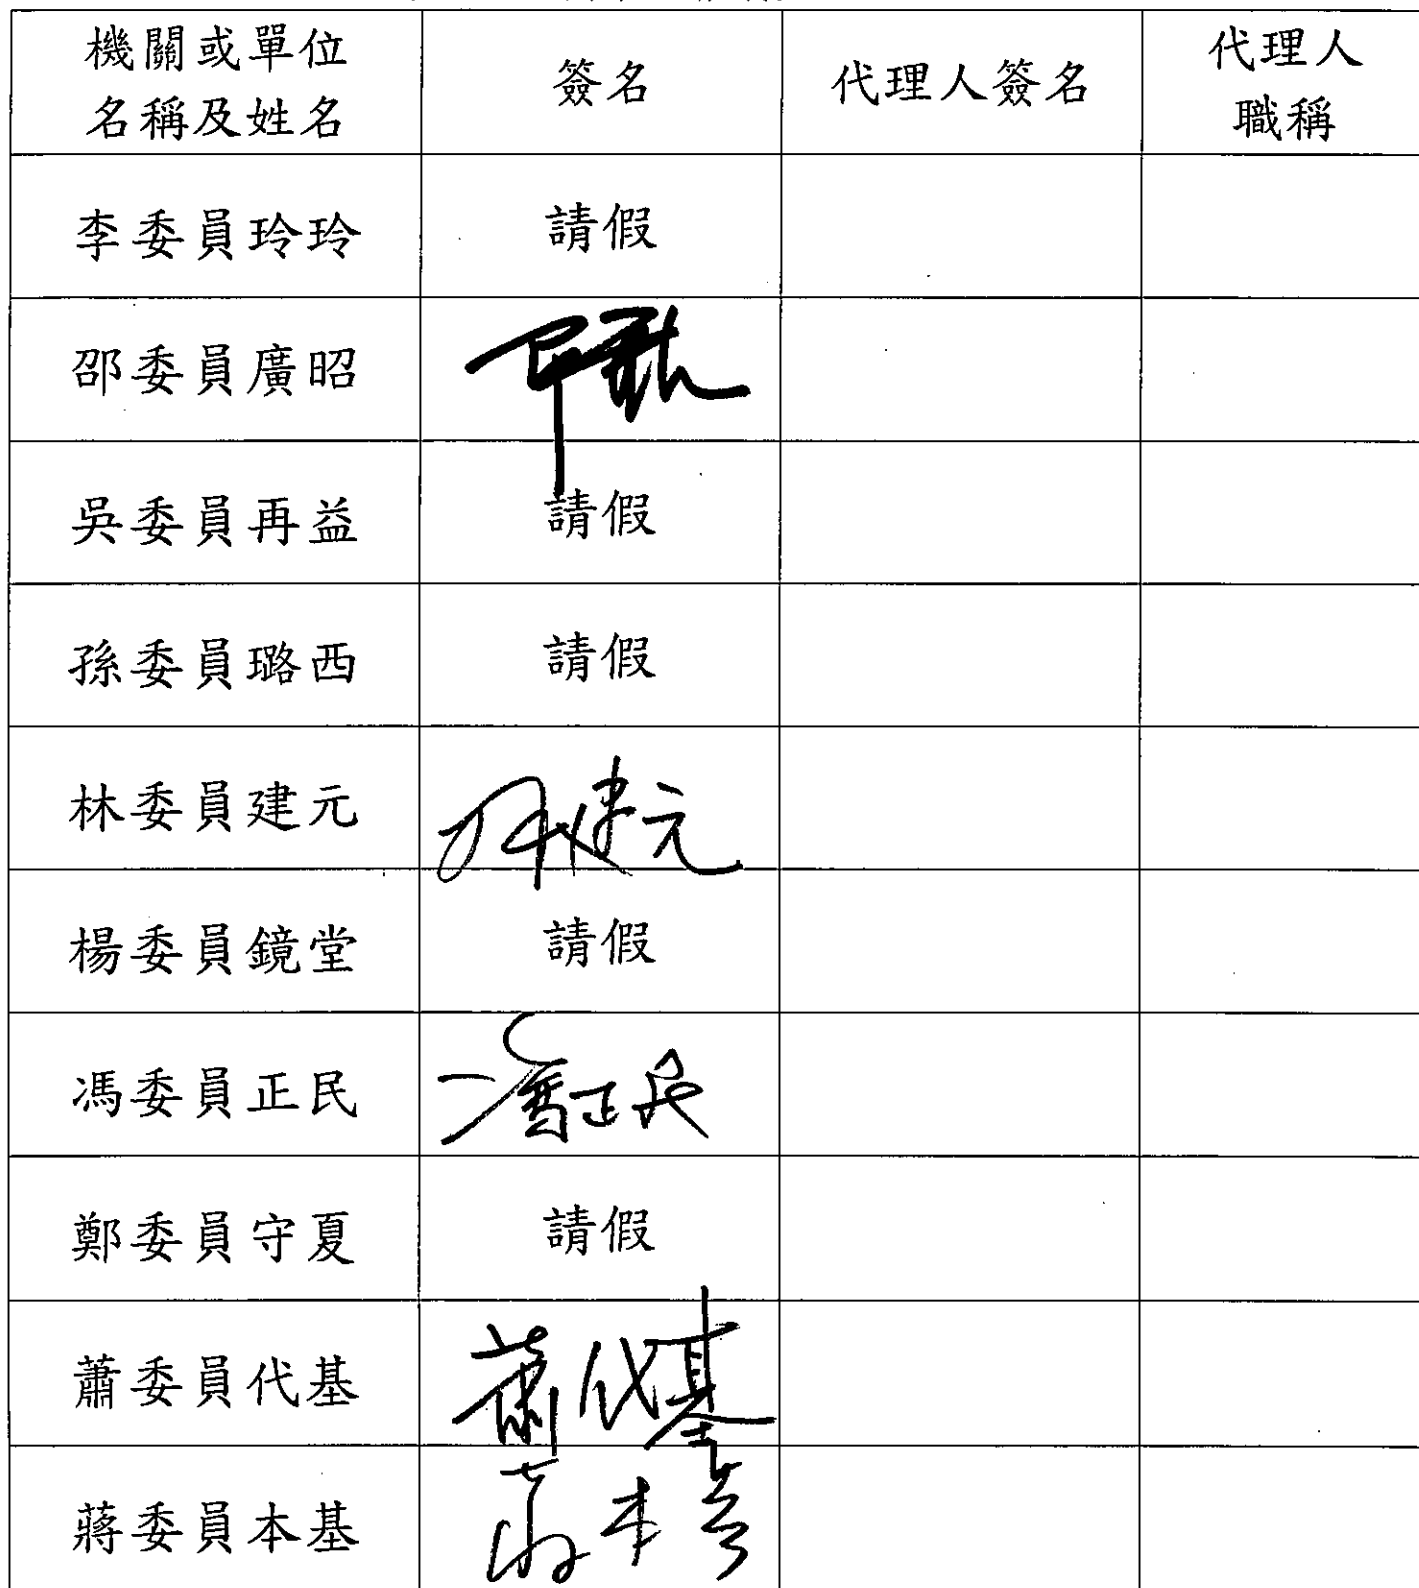 機關或單位
名稱及姓名
簽名
代理人簽名
代理人
職稱
李委員玲玲
請假
邵委員廣昭
吳委員再益
請假
孫委員璐西
請假
林委員建元
林建元
楊委員鏡堂
請假
馮委員正民
馮正民
鄭委員守夏
請假
蕭委員代基
蕭代基
蔣委員本基
蔣本基